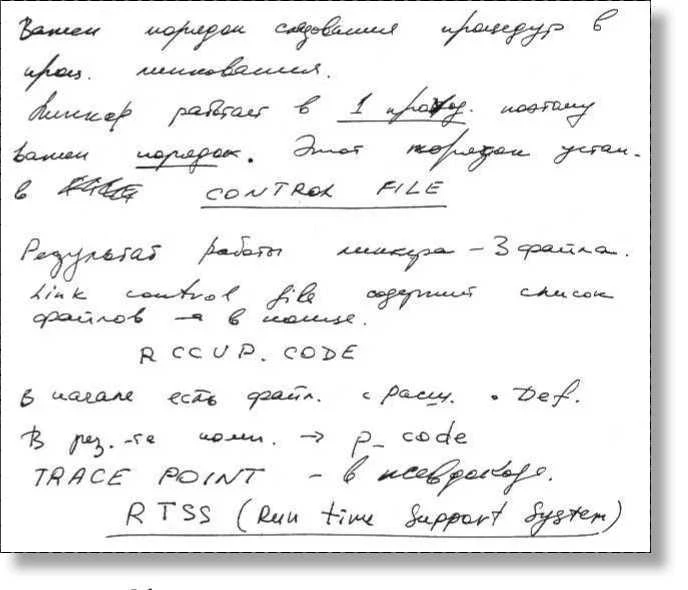 Важен порядок следования процедур в
проц. линкования.
Линкер работает в 1 проход. поэтому
важен порядок. Этот порядок устан.
в CONTROL FILE
Результат работы линкера – 3 файла.
Link control file содержит список
файлов в конце.
RCCUP.CODE
в начале есть файл. с расш. .Def.
В рез.-те комп. → p_code
TRACE POINT – в псевдокоде.
RTSS (Run time Support System)